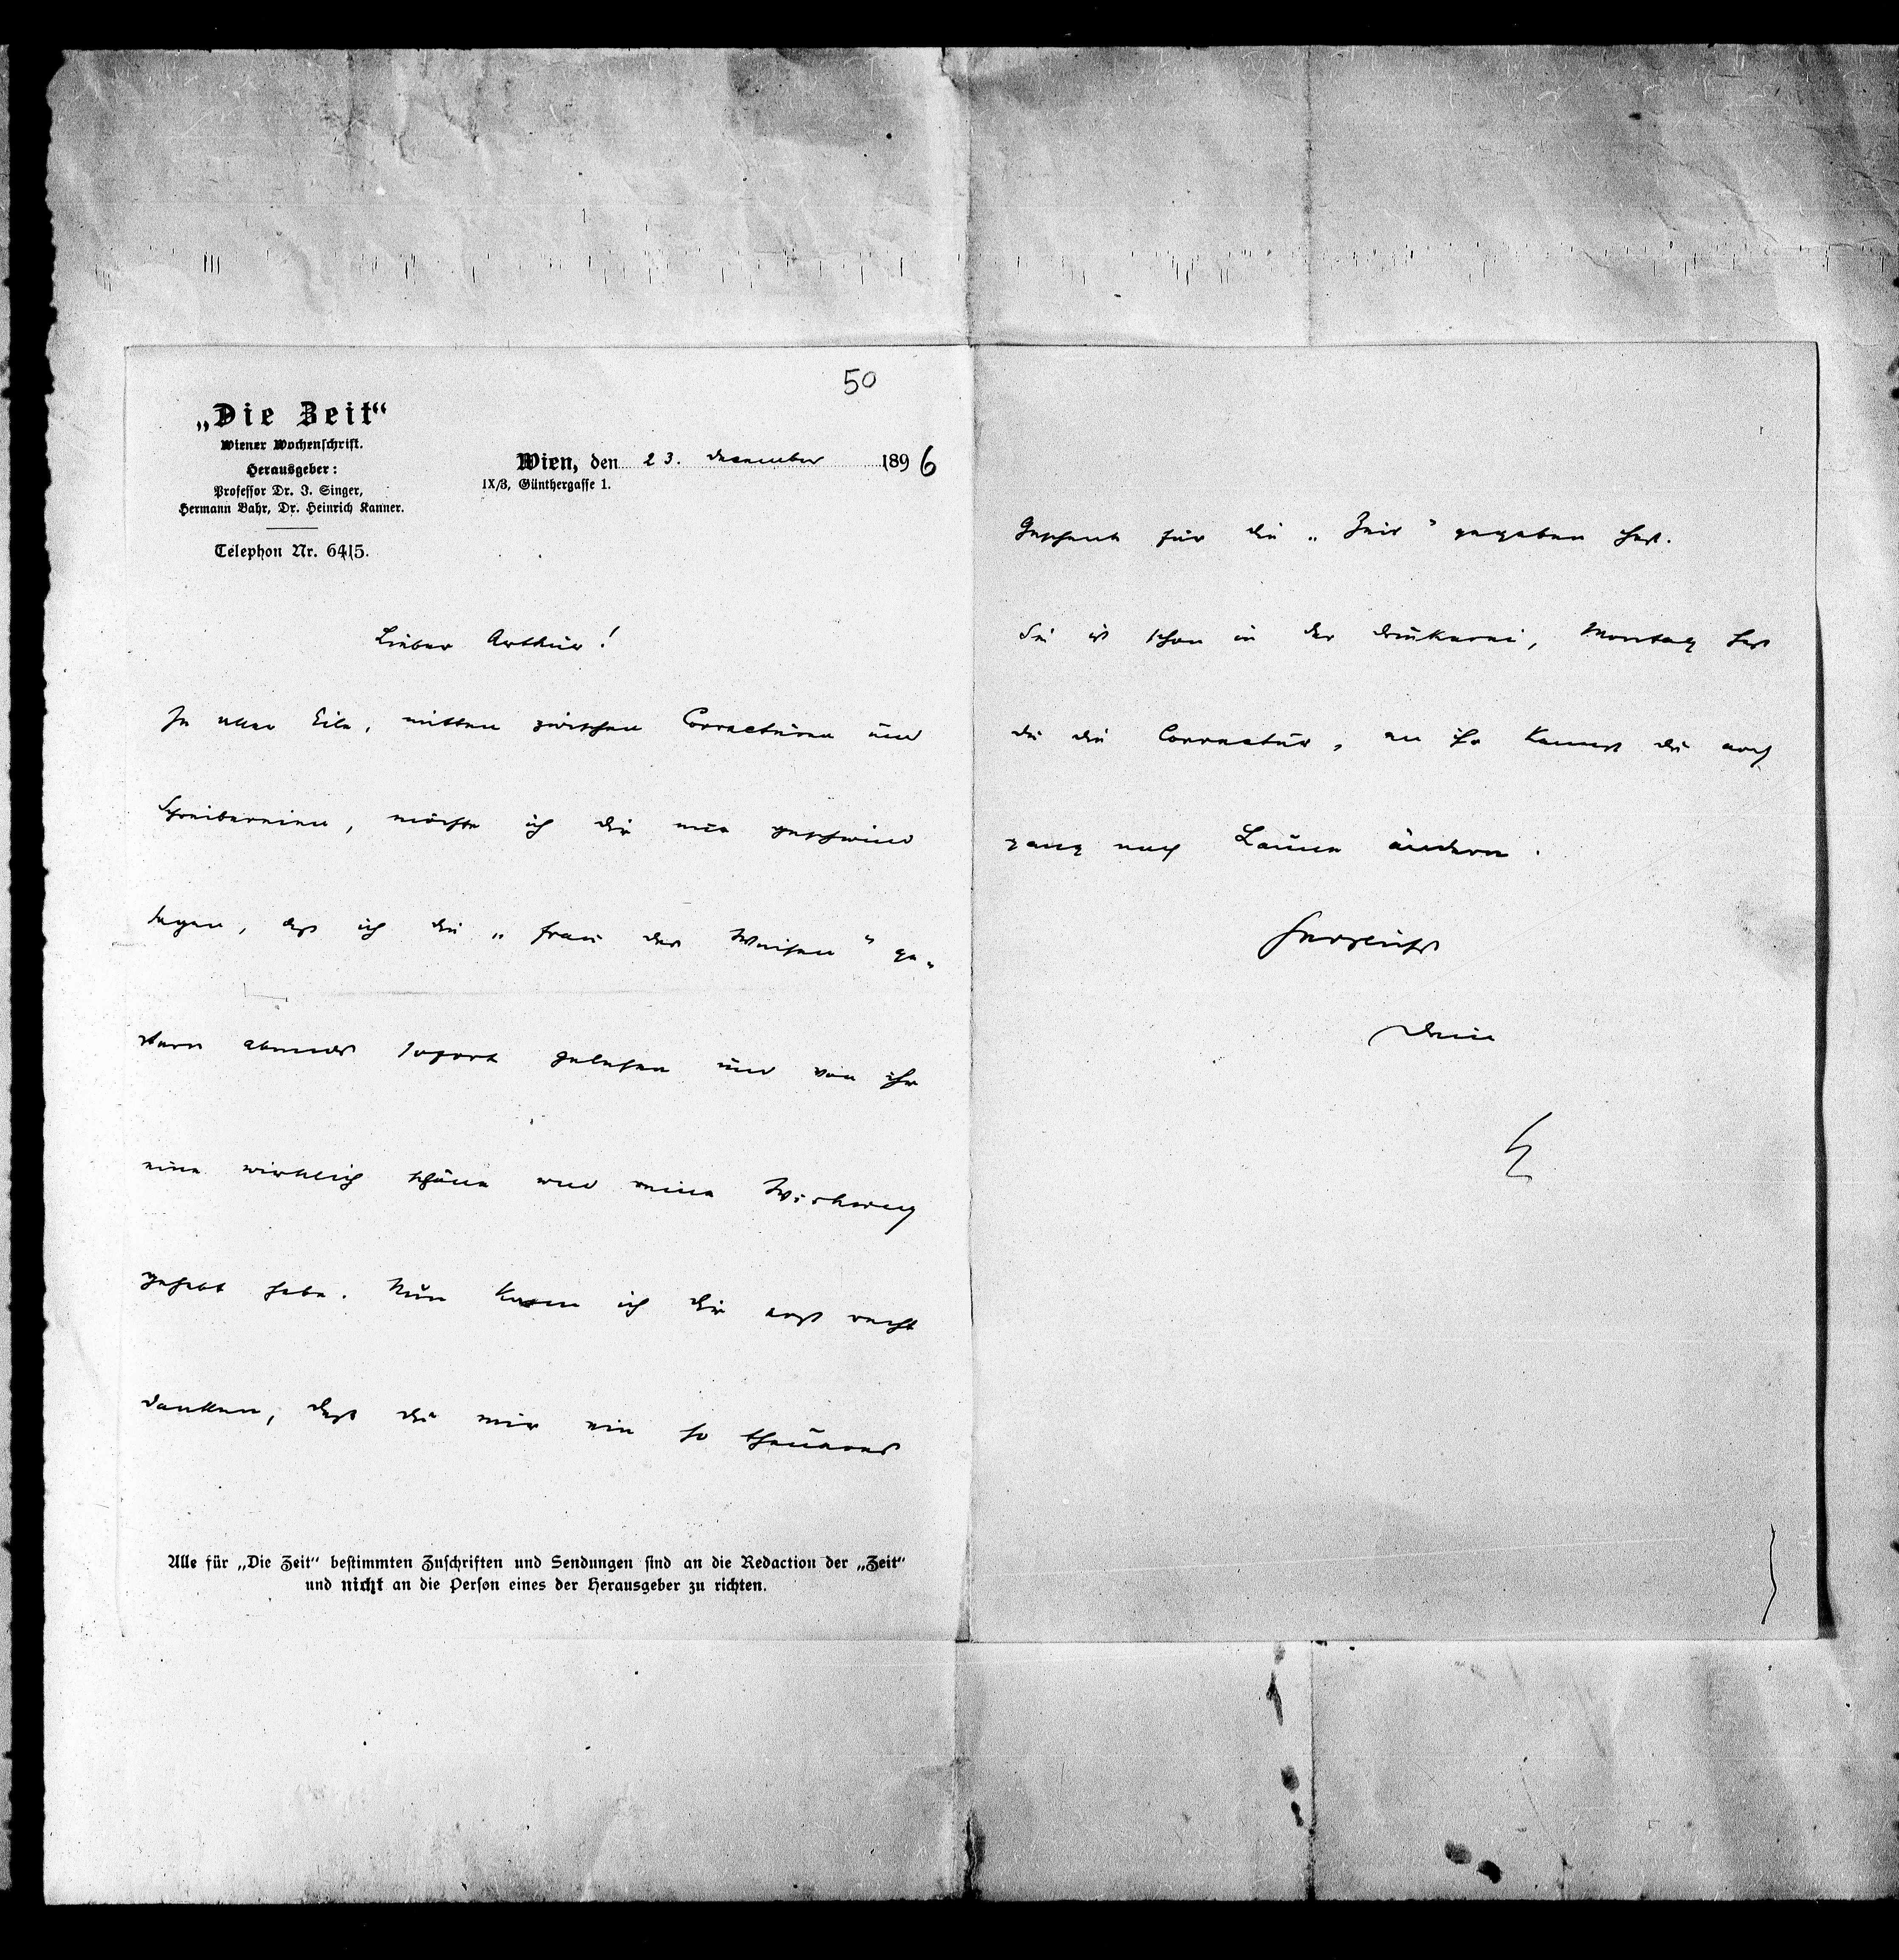 50
„Die Zeit“
Wiener Wochenschrift.
Herausgeber:
Professor Dr. I. Singer,
Hermann Bahr, Dr. Heinrich Kanner.
Telephon Nr. 6415.
Wien, den 23. December 1896
IX/3, Günthergasse 1.
Lieber Arthur!
In aller Eile, mitten zwischen Correcturen und
Schreibereien, möchte ich Dir nur geschwind
sagen, daß ich die „Frau des Weisen“ ge-
stern abends sofort gelesen und von ihr
eine wirklich schöne und reine Wirkung
gehabt habe. Nun kann ich Dir erst recht
danken, daß Du mir ein so theueres
Alle für „Die Zeit“ bestimmten Zuschriften und Sendungen sind an die Redaction der „Zeit“
und nicht an die Person eines der Herausgeber zu richten.
Geschenk für die „Zeit“ gegeben hast.
Sie ist schon in der Druckerei, Montag hast
Du die Correctur, an ihr kannst Du noch
ganz nach Laune ändern.
Herzlichst
Dein